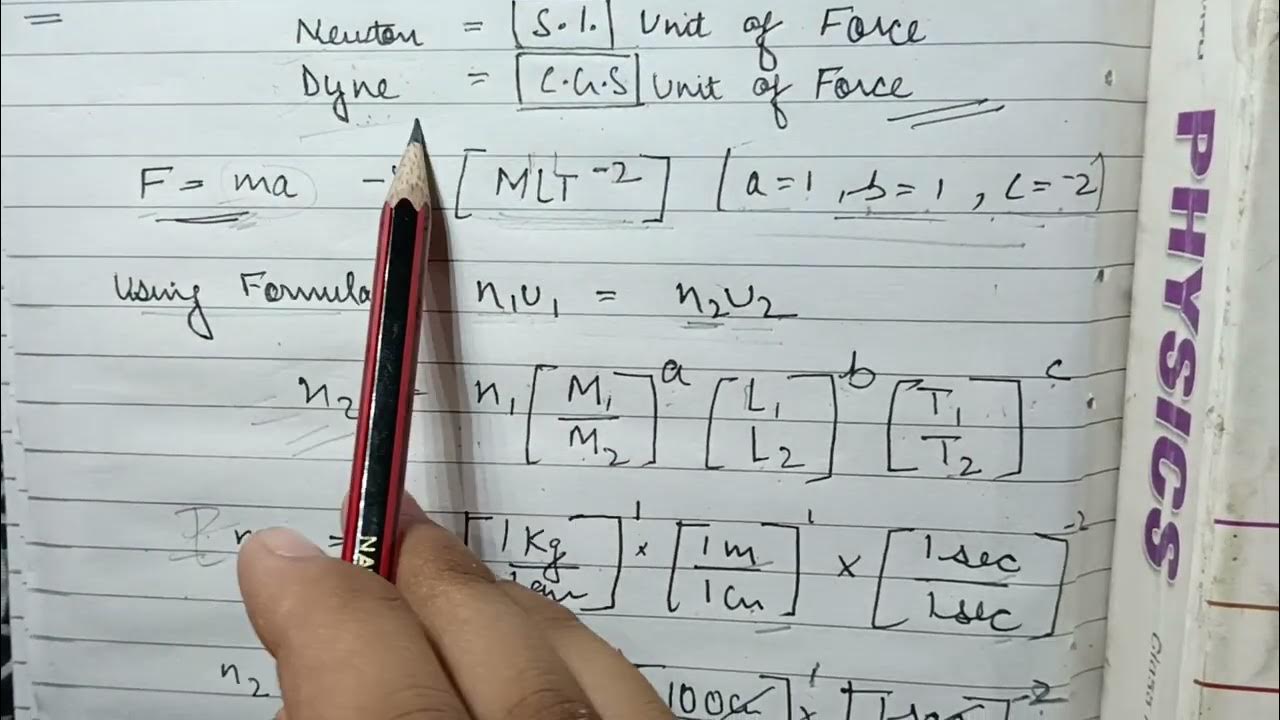 Newton = [S.I.] Unit of Force
Dyne = [C.G.S] Unit of Force
F = ma [MLT⁻²] [a=1, b=1, c=-2]
Using Formula n₁u₁ = n₂u₂
n₂ = n₁ [M₁/M₂]ᵃ [L₁/L₂]ᵇ [T₁/T₂]ᶜ
= [1 Kg/gm]¹ × [1m/1cm]¹ × [1sec/1sec]⁻²
n₂ 100cm]¹ × [1sec ]⁻²
PHYSICS
NA